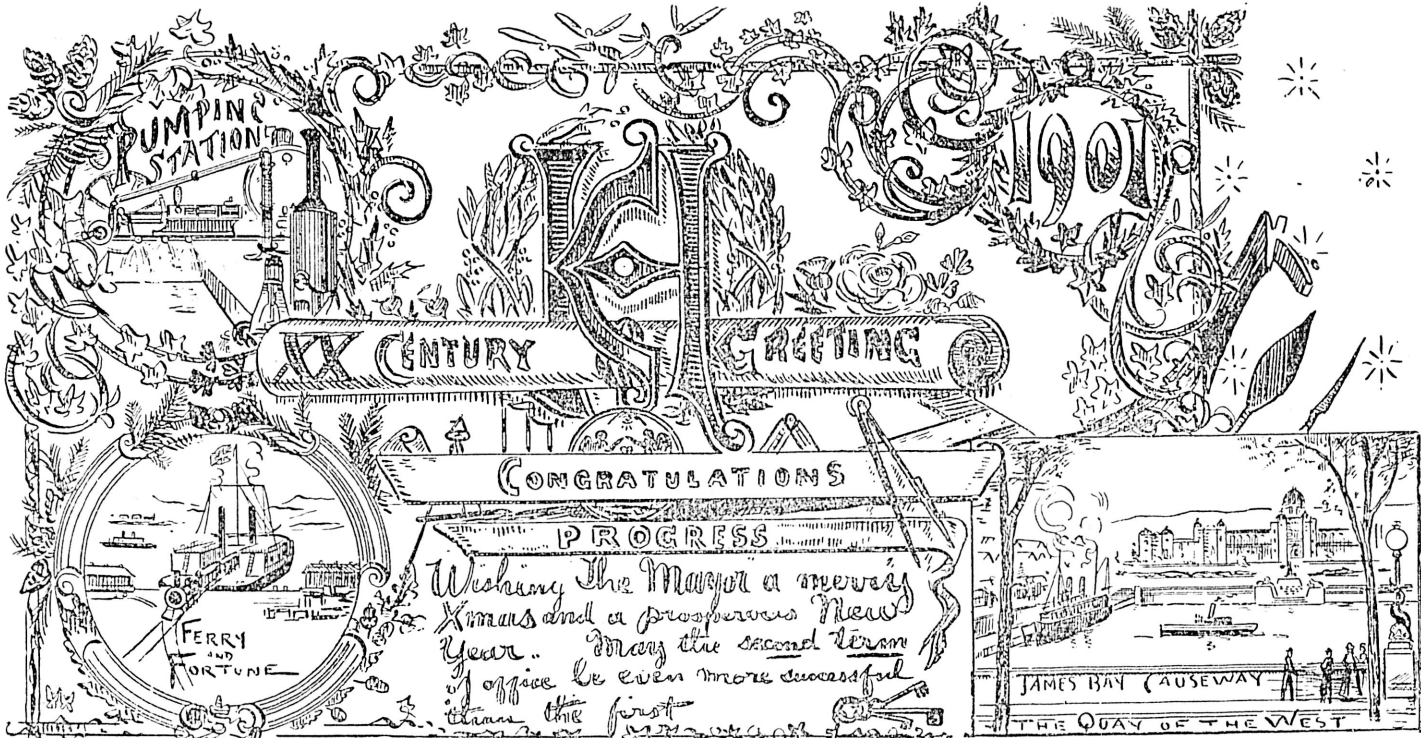 PUMPING
STATION
1901
H
XX CENTURY GREETING
CONGRATULATIONS
PROGRESS
Wishing The Mayor a merry
Xmas and a prosperous New
Year.. May the second term
of office be even more successful
than the first
FERRY
AND
FORTUNE
JAMES BAY CAUSEWAY
THE QUAY OF THE WEST